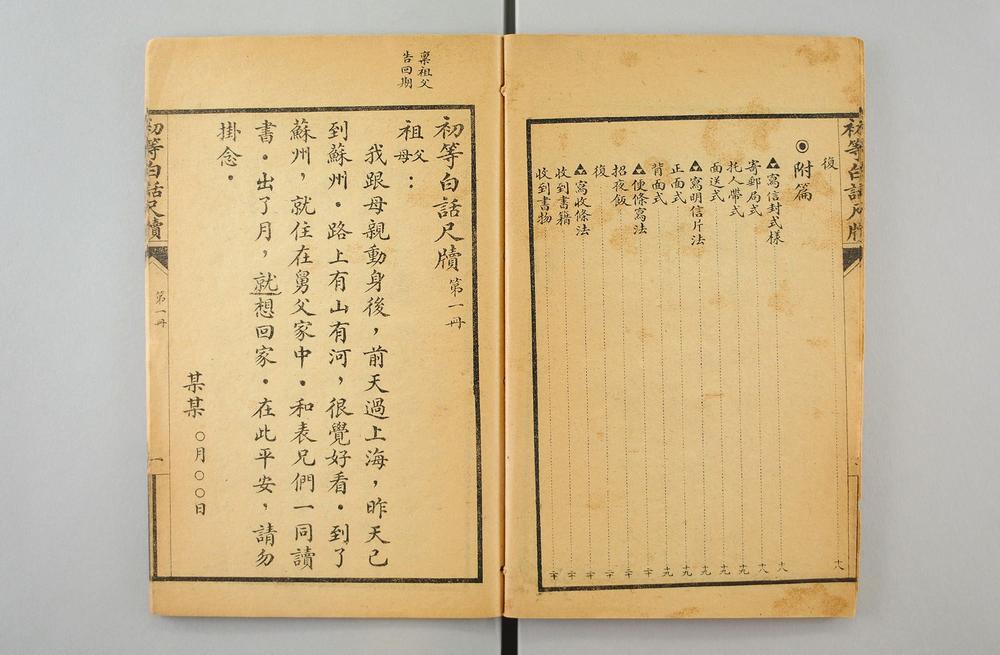 初等白話尺牘
復 十八
◉附篇
▲寫信封式樣 十八
寄郵局式 十八
托人帶式 十九
面送式 十九
▲寫明信片法 十九
正面式 十九
背面式 十九
▲便條寫法 二十
招夜飯 二十
復 二十
▲寫收條法 二十
收到書籍 二十
收到書物 二十
稟祖父
告回期
初等白話尺牘 第一册
祖父母：
我跟母親動身後，前天過上海，昨天已
到蘇州。路上有山有河，很覺好看。到了
蘇州，就住在舅父家中。和表兄們一同讀
書。出了月，就想回家。在此平安，請勿
掛念。
某某 〇月〇〇日
初等白話尺牘
第一册
一